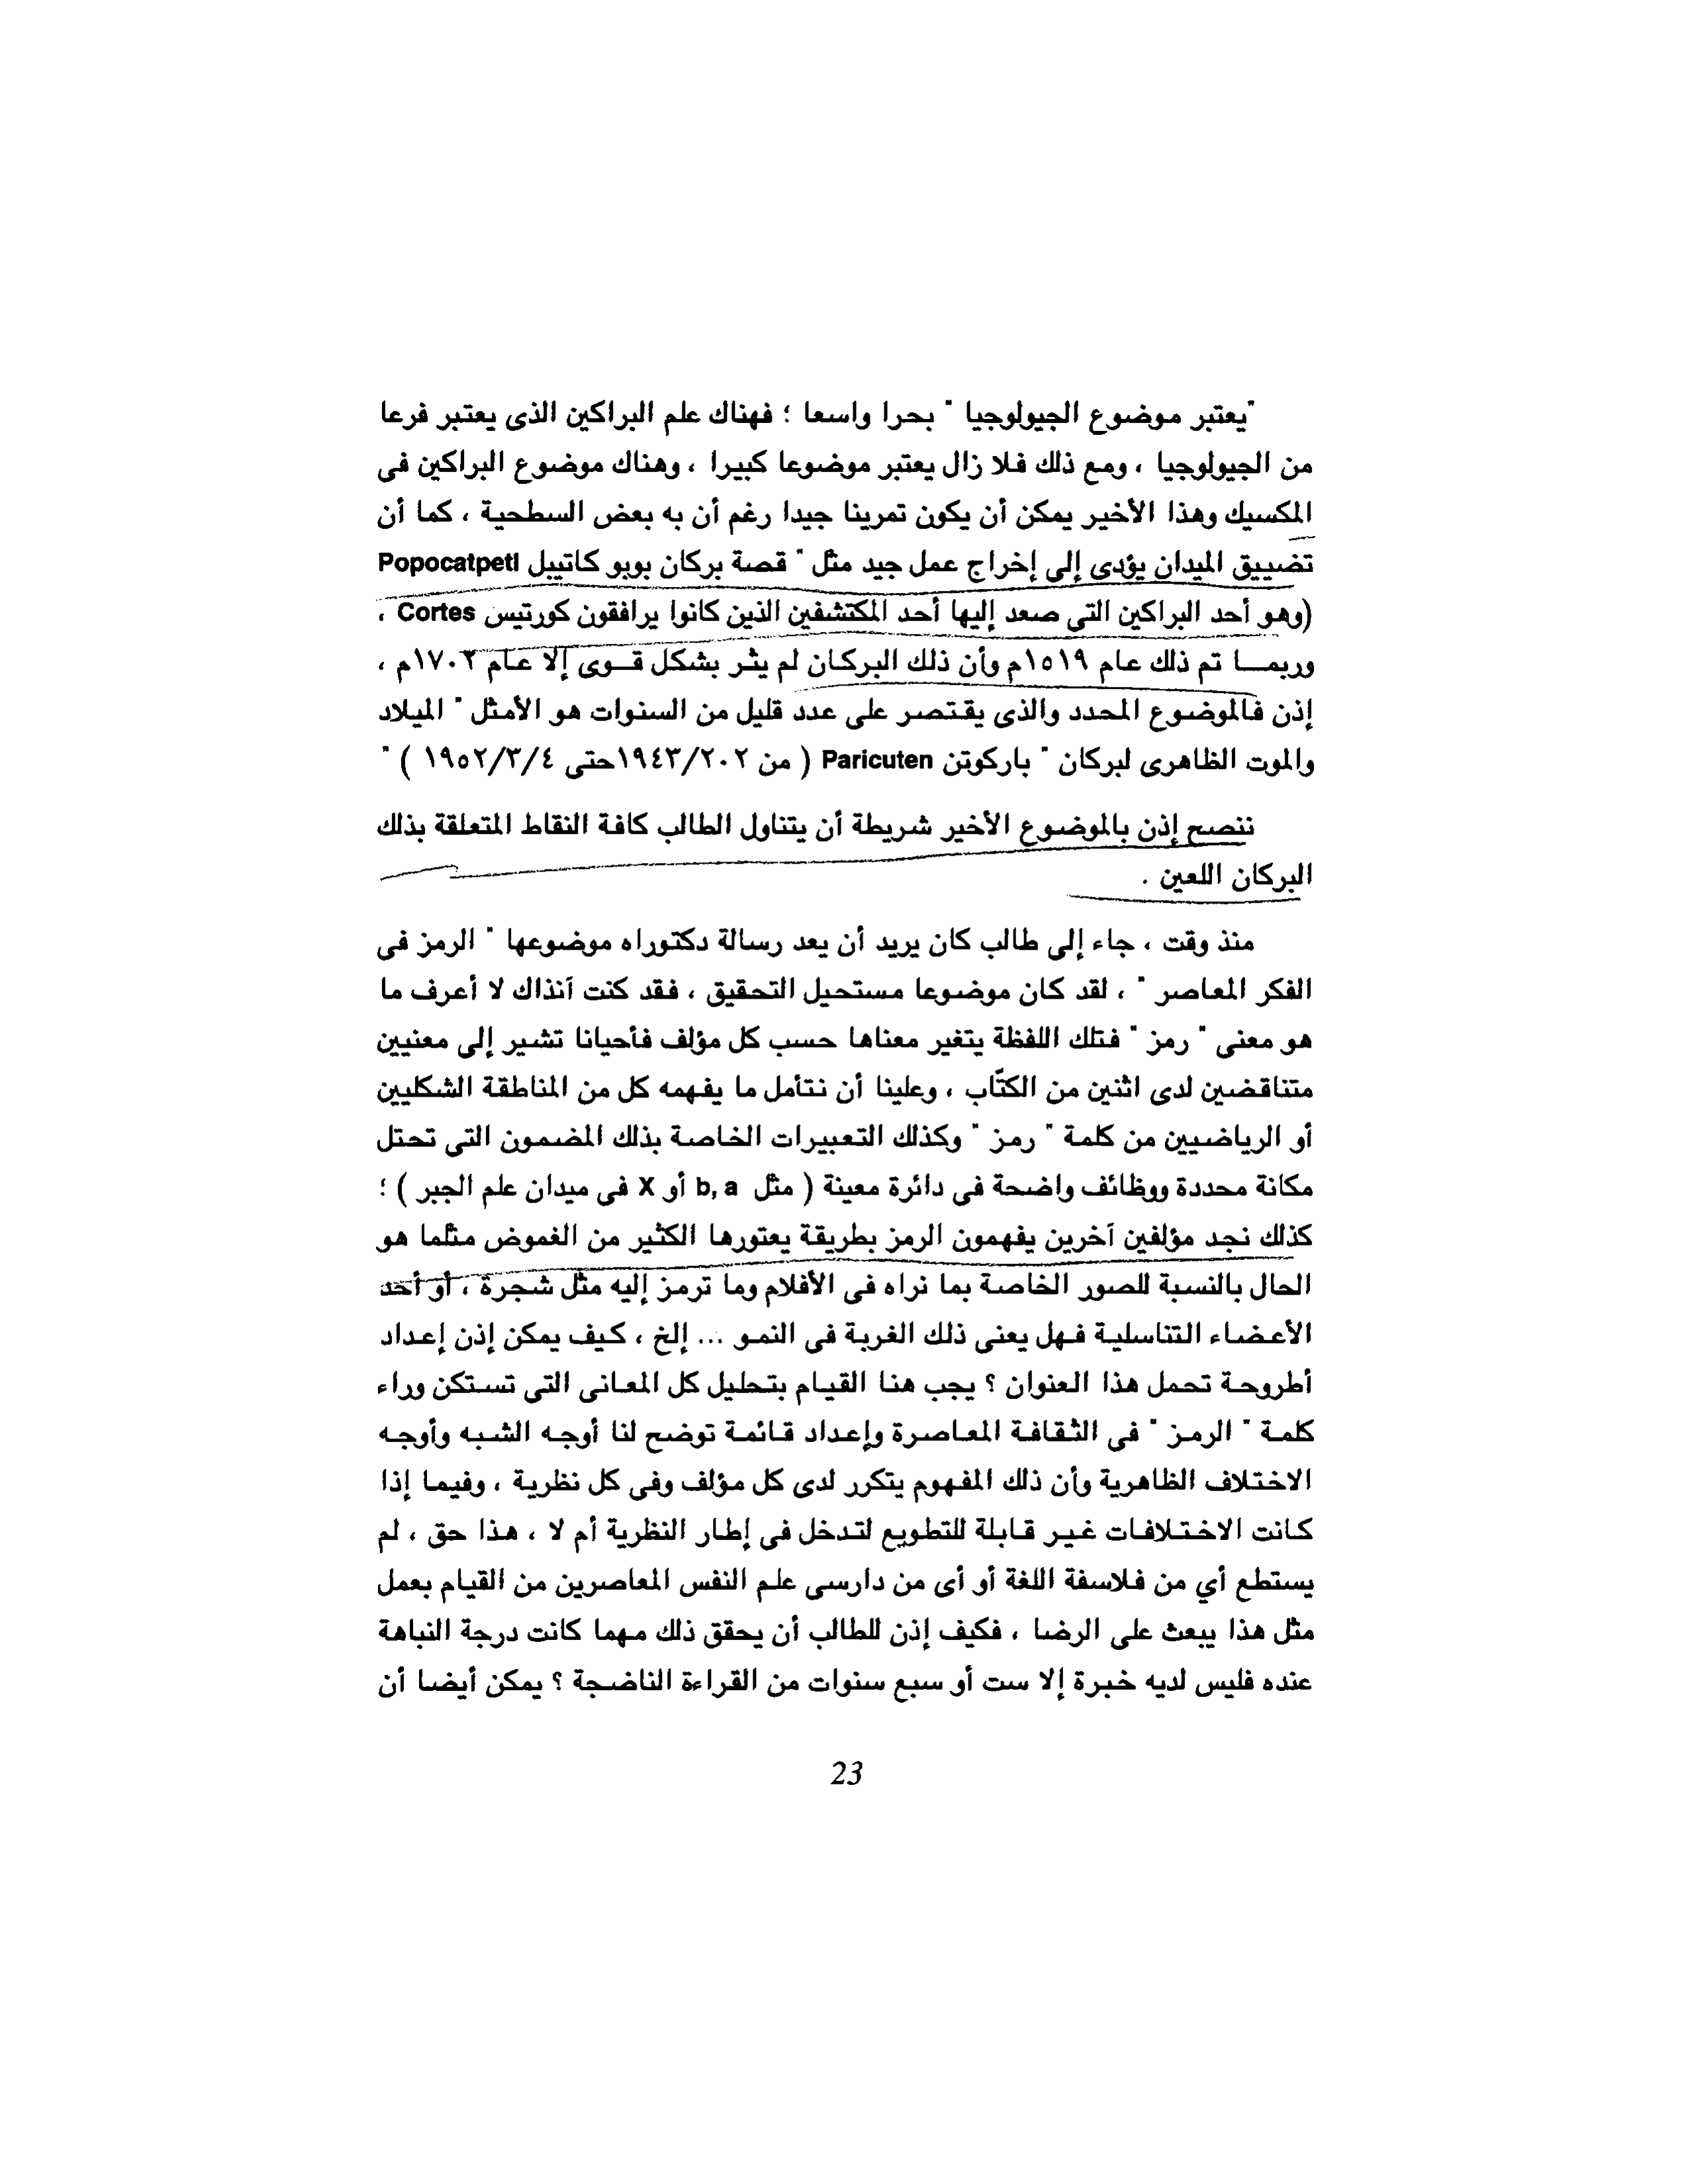 "يعتبر موضوع الجيولوجيا " بحرا واسعا ؛ فهناك علم البراكين الذى يعتبر فرعا
من الجيولوجيا ، ومع ذلك فلا زال يعتبر موضوعا كبيرا ، وهناك موضوع البراكين فى
المكسيك وهذا الأخير يمكن أن يكون تمرينا جيدا رغم أن به بعض السطحية ، كما أن
تضييق الميدان يؤدى إلى إخراج عمل جيد مثل " قصة بركان بوبو كاتيبل Popocatpetl
(وهو أحد البراكين التى صعد إليها أحد المكتشفين الذين كانوا يرافقون كورتيس Cortes ،
وربمـــا تم ذلك عام ١٥١٩م وأن ذلك البركـان لم يثـر بشكل قـــوى إلا عـام ١٧٠٢م ،
إذن فالموضوع المحدد والذى يقتصر على عدد قليل من السنوات هو الأمثل " الميلاد
والموت الظاهرى لبركان " باركوتن Paricuten ( من ١٩٤٣/٢٠٢حتى ١٩٥٢/٣/٤ ) "
ننصح إذن بالموضوع الأخير شريطة أن يتناول الطالب كافة النقاط المتعلقة بذلك
البركان اللعين .
منذ وقت ، جاء إلى طالب كان يريد أن يعد رسالة دكتوراه موضوعها " الرمز فى
الفكر المعاصر " ، لقد كان موضوعا مستحيل التحقيق ، فقد كنت آنذاك لا أعرف ما
هو معنى " رمز " فتلك اللفظة يتغير معناها حسب كل مؤلف فأحيانا تشير إلى معنيين
متناقضين لدى اثنين من الكتّاب ، وعلينا أن نتأمل ما يفهمه كل من المناطقة الشكليين
أو الرياضيين من كلمة " رمز " وكذلك التعبيرات الخاصة بذلك المضمون التى تحتل
مكانة محددة ووظائف واضحة فى دائرة معينة ( مثل b, a أو X فى ميدان علم الجبر ) ؛
كذلك نجد مؤلفين آخرين يفهمون الرمز بطريقة يعتورها الكثير من الغموض مثلما هو
الحال بالنسبة للصور الخاصة بما نراه فى الأفلام وما ترمز إليه مثل شجرة ، أو أحد
الأعضاء التناسلية فهل يعنى ذلك الغربة فى النمو ... إلخ ، كيف يمكن إذن إعداد
أطروحة تحمل هذا العنوان ؟ يجب هنا القيام بتحليل كل المعانى التى تستكن وراء
كلمة " الرمز " فى الثقافة المعاصرة وإعداد قائمة توضح لنا أوجه الشبه وأوجه
الاختلاف الظاهرية وأن ذلك المفهوم يتكرر لدى كل مؤلف وفى كل نظرية ، وفيما إذا
كانت الاختلافات غير قابلة للتطويع لتدخل فى إطار النظرية أم لا ، هذا حق ، لم
يستطع أي من فلاسفة اللغة أو أى من دارسى علم النفس المعاصرين من القيام بعمل
مثل هذا يبعث على الرضا ، فكيف إذن للطالب أن يحقق ذلك مهما كانت درجة النباهة
عنده فليس لديه خبرة إلا ست أو سبع سنوات من القراءة الناضجة ؟ يمكن أيضا أن
23